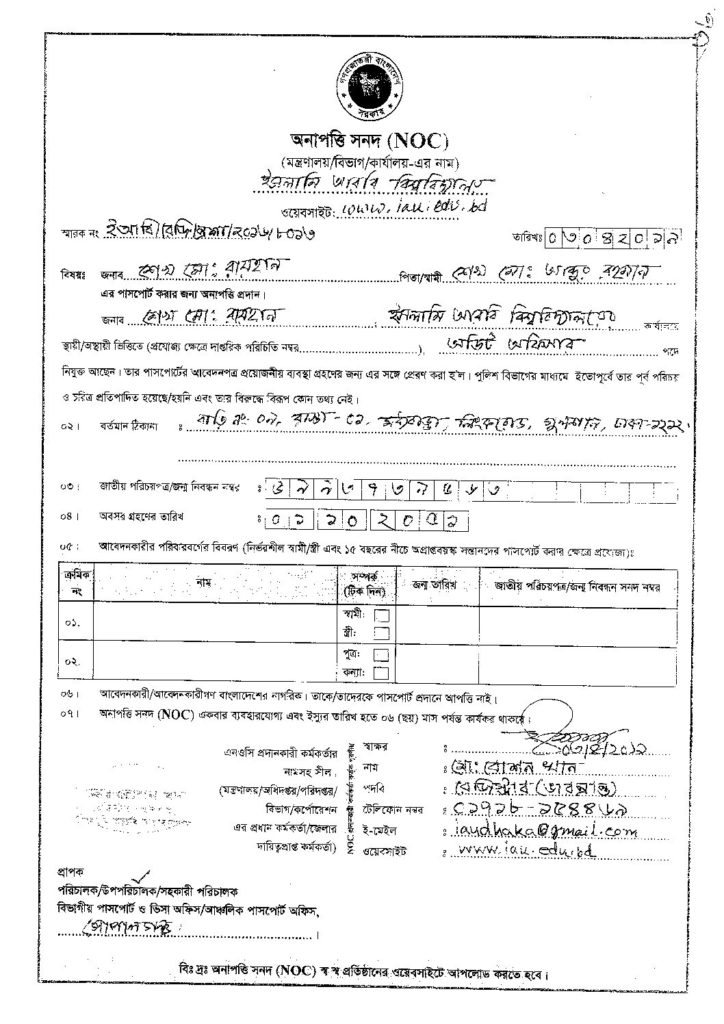 গণপ্রজাতন্ত্রী বাংলাদেশ
সরকার
অনাপত্তি সনদ (NOC)
(মন্ত্রণালয়/বিভাগ/কার্যালয়-এর নাম)
ইসলামি আরবি বিশ্ববিদ্যালয়
ওয়েবসাইট: www.iau.edu.bd
স্মারক নং ইআবি/রেজি/প্রশা/২০১৬/৮০১৬
তারিখঃ
বিষয়ঃ জনাব শেখ মো: রায়হান পিতা/স্বামী শেখ মো: আব্দুর রহমান
এর পাসপোর্ট করার জন্য অনাপত্তি প্রদান।
জনাব শেখ মো: রায়হান, ইসলামি আরবি বিশ্ববিদ্যালয়ে কার্যালয়ে
স্থায়ী/অস্থায়ী ভিত্তিতে (প্রযোজ্য ক্ষেত্রে দাপ্তরিক পরিচিতি নম্বর), অডিট অফিসার পদে
নিযুক্ত আছেন। তার পাসপোর্টের আবেদনপত্র প্রয়োজনীয় ব্যবস্থা গ্রহণের জন্য এর সঙ্গে প্রেরণ করা হ'ল। পুলিশ বিভাগের মাধ্যমে ইতোপূর্বে তার পূর্ব পরিচয়
ও চরিত্র প্রতিপাদিত হয়েছে/হয়নি এবং তার বিরুদ্ধে বিরূপ কোন তথ্য নেই।
০২। বর্তমান ঠিকানা : বাড়ি নং- ০৯, রাস্তা - লিংকরোড, গুলশান, ঢাকা-১২১২.
০৩। জাতীয় পরিচয়পত্র/জন্ম নিবন্ধন নম্বর :
০৪। অবসর গ্রহণের তারিখ :
০৫। আবেদনকারীর পরিবারবর্গের বিবরণ (নির্ভরশীল স্বামী/স্ত্রী এবং ১৫ বছরের নীচে অপ্রাপ্তবয়স্ক সন্তানদের পাসপোর্ট করার ক্ষেত্রে প্রযোজ্য)ঃ
ক্রমিক নং নাম সম্পর্ক (টিক দিন) জন্ম তারিখ জাতীয় পরিচয়পত্র/জন্ম নিবন্ধন সনদ নম্বর
০১. স্বামী:
স্ত্রী:
০২. পুত্র:
কন্যা:
০৬। আবেদনকারী/আবেদনকারীগণ বাংলাদেশের নাগরিক। তাকে/তাদেরকে পাসপোর্ট প্রদানে আপত্তি নাই।
০৭। অনাপত্তি সনদ (NOC) একবার ব্যবহারযোগ্য এবং ইস্যুর তারিখ হতে ০৬ (ছয়) মাস পর্যন্ত কার্যকর থাকবে।
এনওসি প্রদানকারী কর্মকর্তার স্বাক্ষর :
নামসহ সীল, নাম : মো: রোশন খান
(মন্ত্রণালয়/অধিদপ্তর/পরিদপ্তর/ পদবি : রেজিস্ট্রার (ভারপ্রাপ্ত)
বিভাগ/কর্পোরেশন টেলিফোন নম্বর :
এর প্রধান কর্মকর্তা/জেলার ই-মেইল : iaudhaka@gmail.com
দায়িত্বপ্রাপ্ত কর্মকর্তা) ওয়েবসাইট : www.iau.edu.bd
প্রাপক
পরিচালক/উপপরিচালক/সহকারী পরিচালক
বিভাগীয় পাসপোর্ট ও ভিসা অফিস/আঞ্চলিক পাসপোর্ট অফিস,
গোপালগঞ্জ।
বিঃ দ্রঃ অনাপত্তি সনদ (NOC) স্ব স্ব প্রতিষ্ঠানের ওয়েবসাইটে আপলোড করতে হবে।